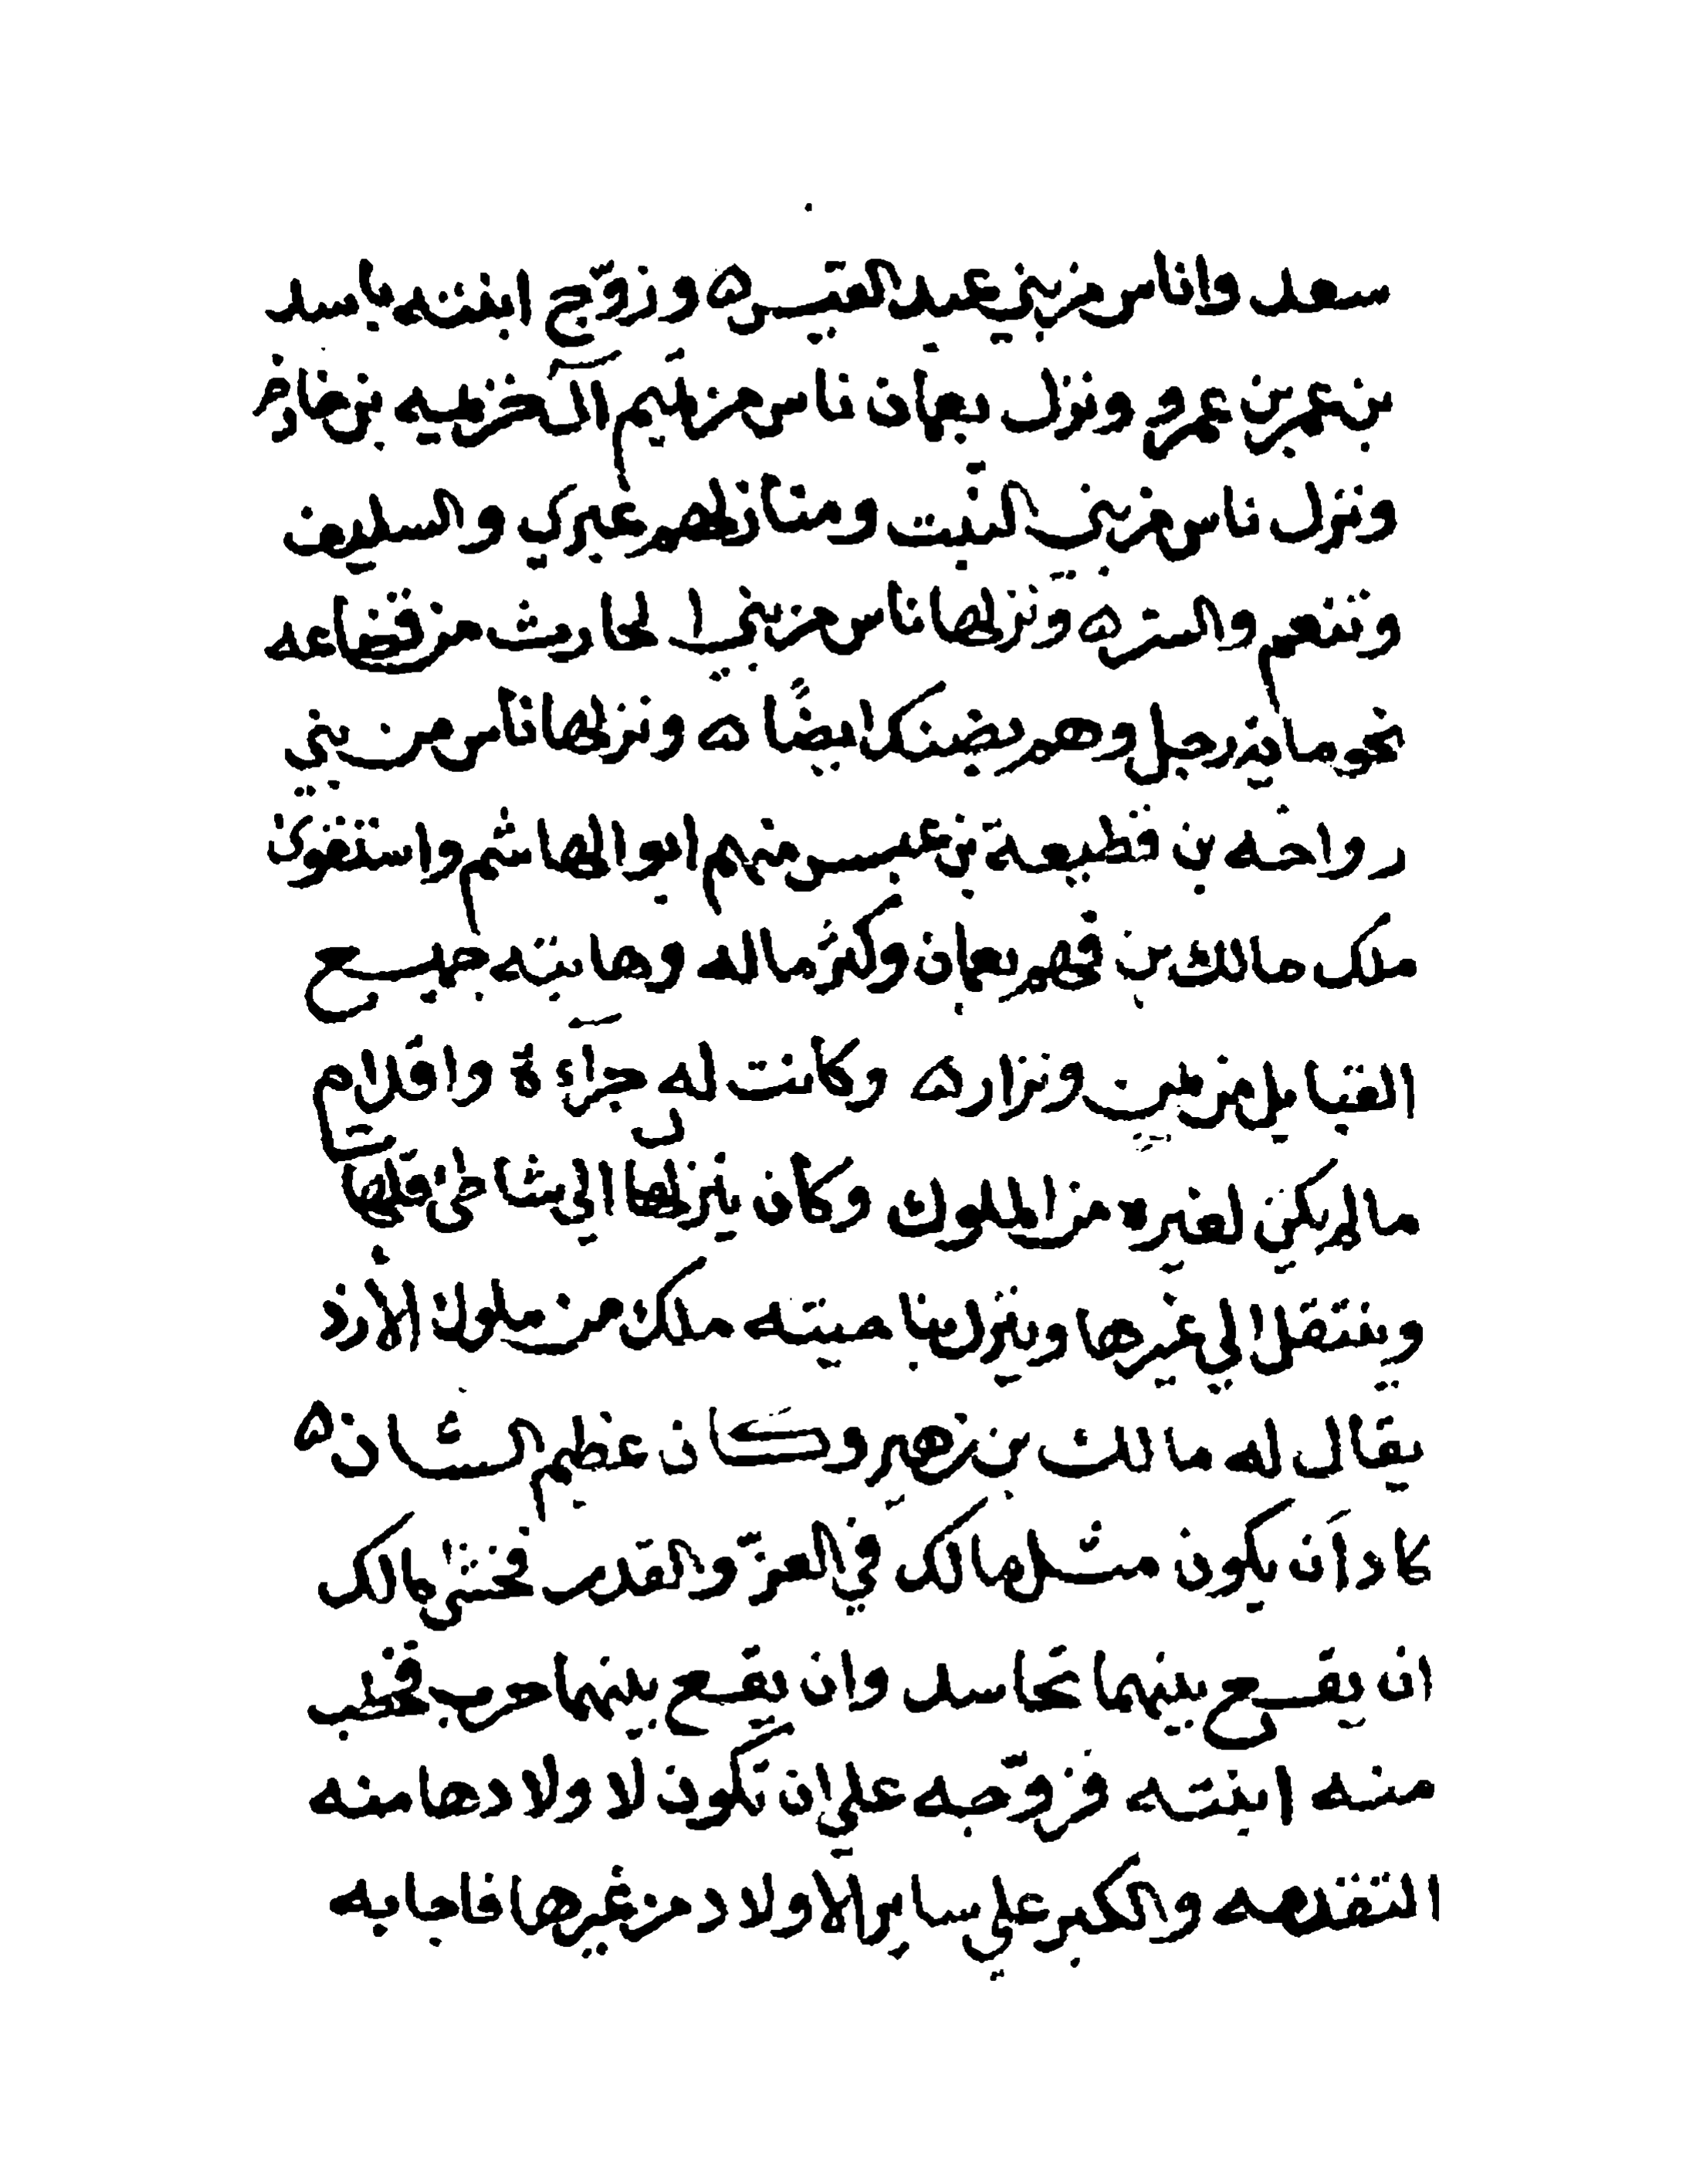 سعد واناس من بني عبد القيس ه وزوّج ابنته باسد
بن عمر بن عمرو ونزل بعمان ناس من تميم آل خزيمه بن خازم
ونزل ناس من بني النبت ومنازلهم عبري والسليف
وتنعم والسر ه ونزلها ناس من بني الحارث من قضاعه
نحو مايه رجل وهم بضنك ايضًا ه ونزلها ناس من بني
رواحه بن قطيعة بن عبس منهم ابو الهاشم واستقوى
ملك مالك بن فهم بعمان وكثر ماله وهابته جميع
القبايل من يمن ونزار ه وكانت له جرآءة واقدام
ما لم يكن لغيره من الملوك وكان ينزلها الى شاطئ قلهات
وينتقل الي غيرها وينزل بناحيته ملك من ملوك الأزد
يقال له مالك بن زهير وكان عظيم الشان ه
كاد أن يكون مثل مالك في العزّ والقدر فخشى مالك
ان يقع بينهما تحاسد وان يقع بينهما حرب فخطب
منه ابنته فزوّجه علي ان تكون لاولادها منه
التقدمه والكبر علي ساير الأولاد من غيرها فاجابه